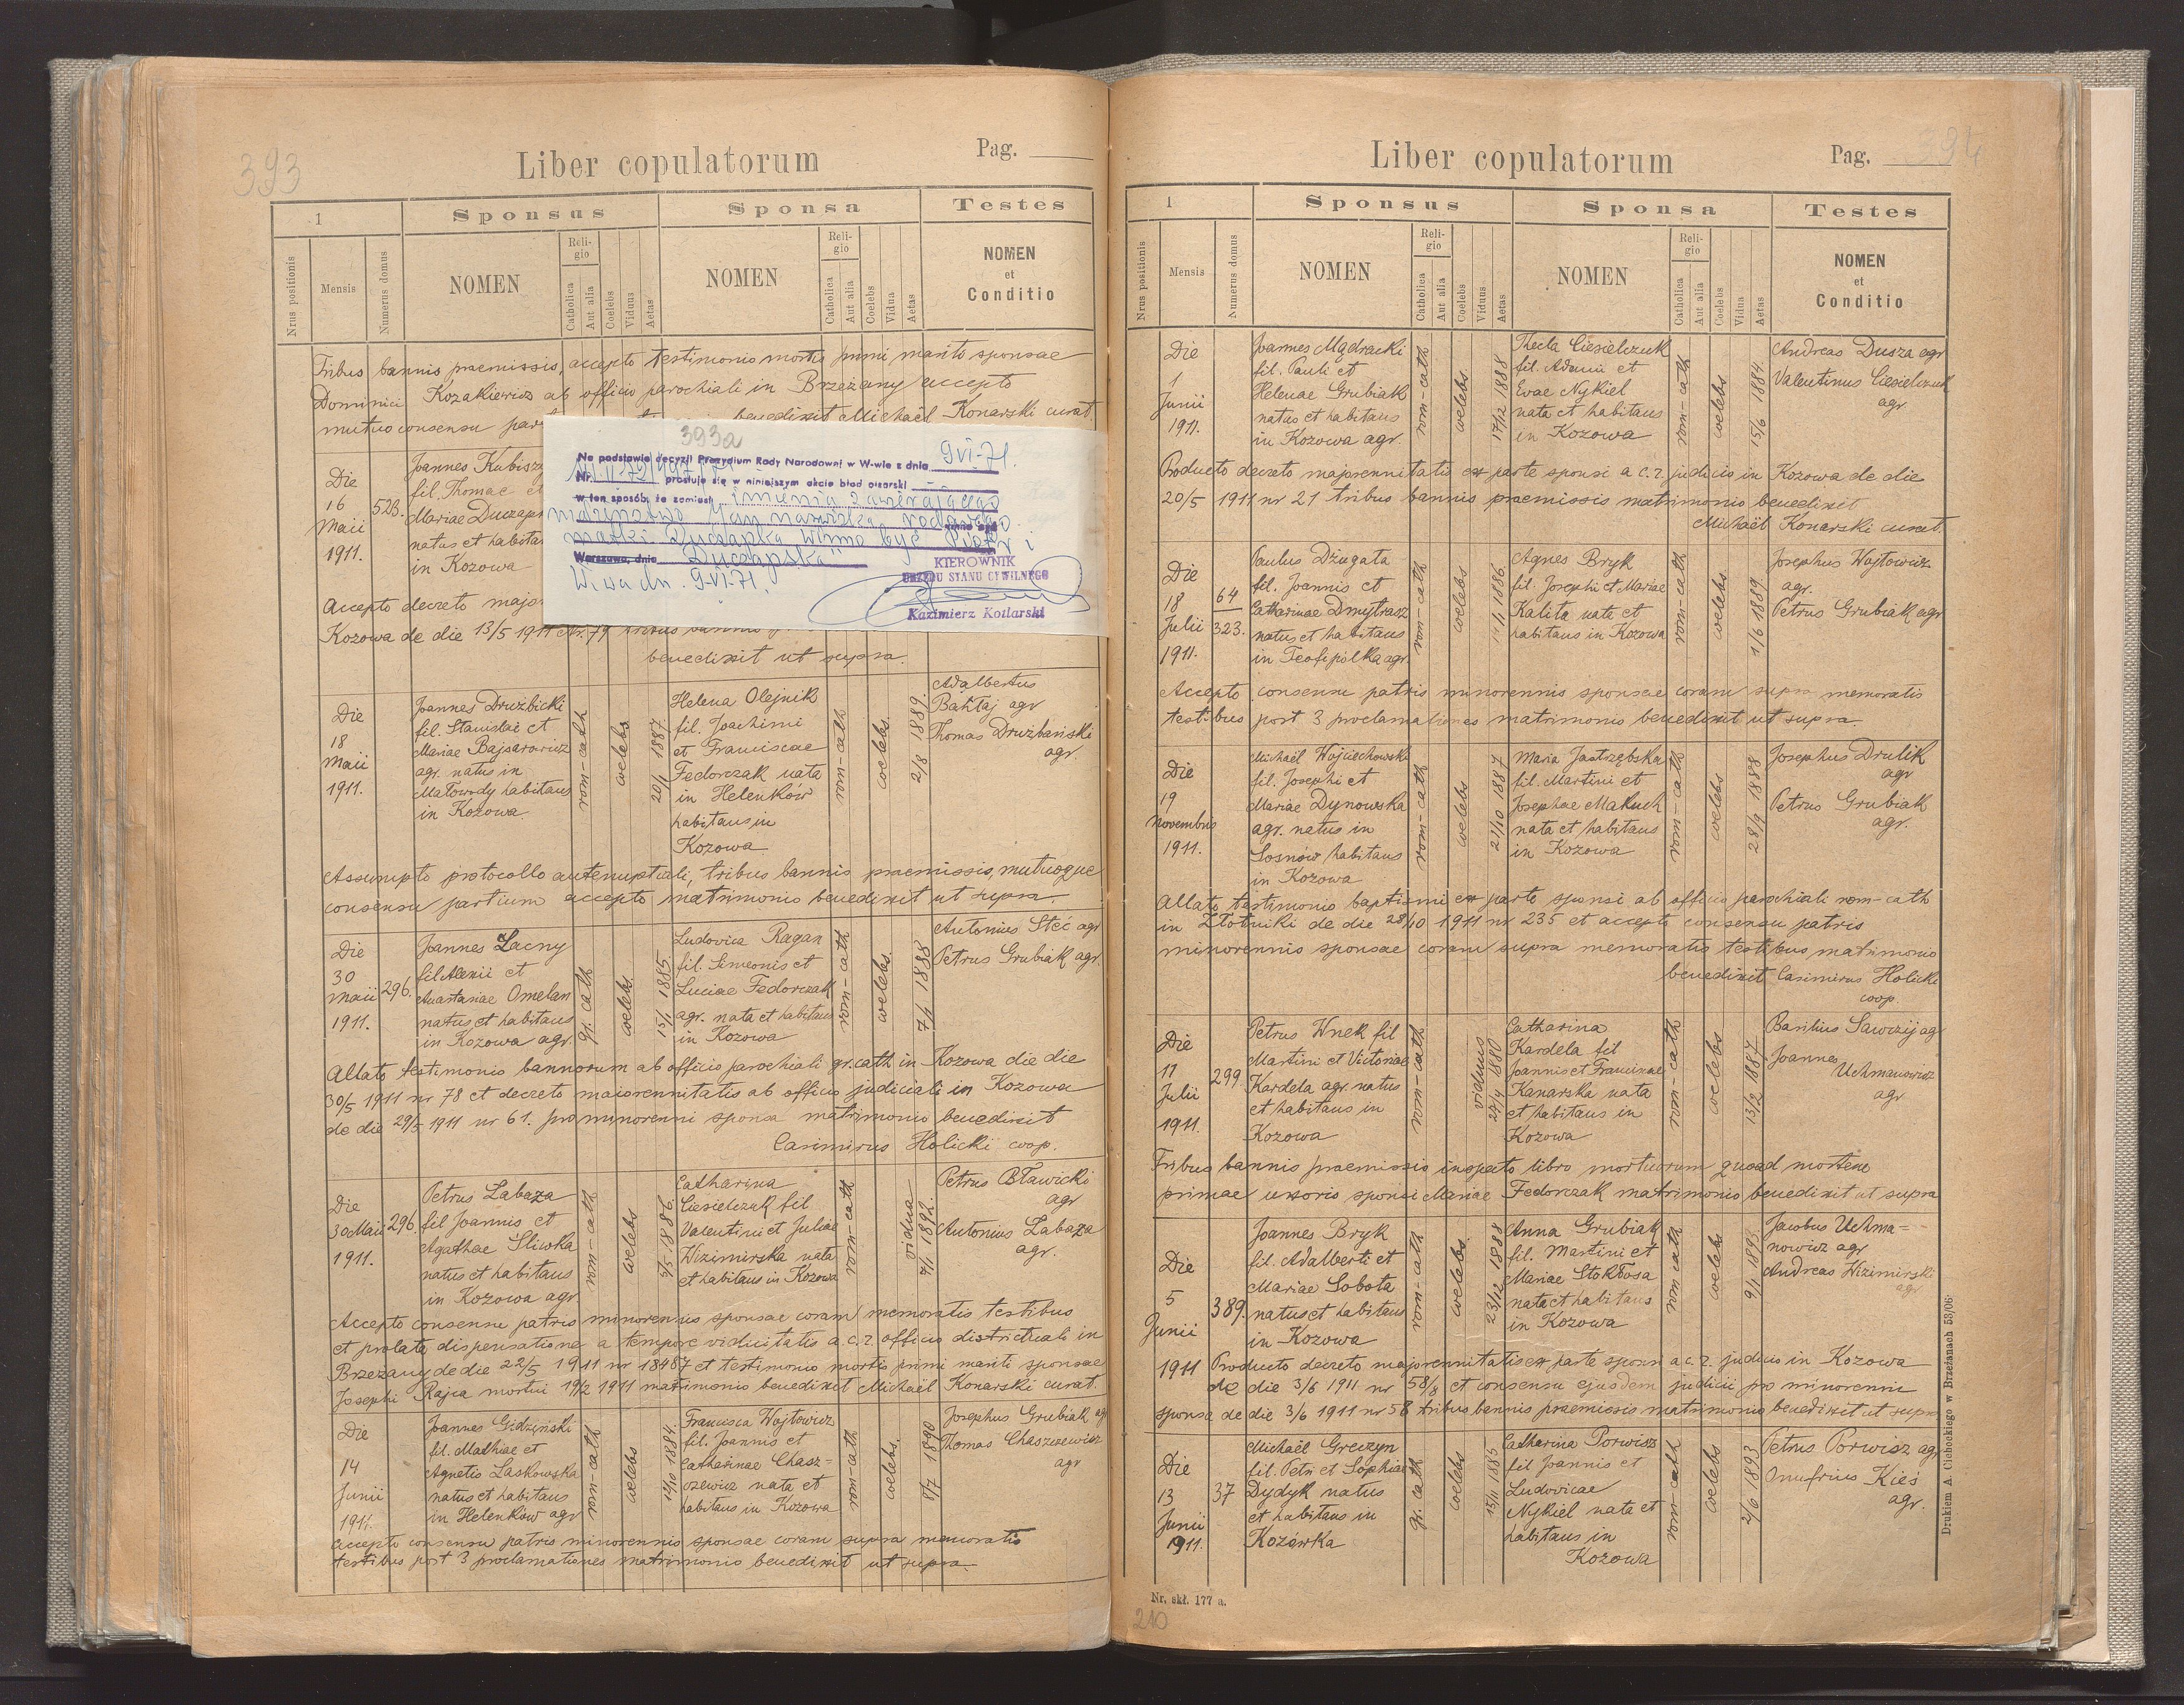 393
Liber copulatorum
Pag.
1
Sponsus
Sponsa
Testes
Nrus positionis
Mensis
Numerus domus
NOMEN
Religio
Catholica
Aut alia
Coelebs
Viduus
Aetas
NOMEN
Religio
Catholica
Aut alia
Coelebs
Vidua
Aetas
NOMEN
et
Conditio
Tribus bannis praemissis, accepto testimonio mortis primi mariti sponsae
Dominici Kozakiewicz ab officio parochiali in Brzeżany accepto
mutuo consensu benedixit Michaël Konarski curat.
393a
Na podstawie decyzji Prezydium Rady Narodowej w W-wie z dnia 9 VI-71.
Nr. prostuje się w niniejszym akcie błąd pisarski
w ten sposób, że zamiast imienia zawierającego
małżeństwo "Jan" nazwiska rodowego
matki Duczapka winno być "Piotr" i
Warszawa, dnia "Duczapska"
W-wa dn. 9-VI-71.
KIEROWNIK
URZĘDU STANU CYWILNEGO
Kazimierz Kotlarski
Die
16
Maii
1911.
523.
Joannes Kubisz
fil. Thomae et
Mariae
natus et
in Kozowa
Accepto decreto
Kozowa de die 13/5 1911 Nr. 79 tribus bannis
benedixit ut supra.
Die
18
Maii
1911.
Joannes Drużbicki
fil. Stanislai et
Mariae Bajsarowicz
agr. natus in
Małowody habitans
in Kozowa.
rom-cath
coelebs
20/1 1887.
Helena Olejnik
fil. Joachimi
et Franciscae
Fedorczak nata
in Helenków
habitans in
Kozowa
rom-cath
coelebs
2/8 1889.
Adalbertus
Bałtaj agr
Thomas Drużbański
agr.
Assumpto protocollo antenuptiali, tribus bannis praemissis, mutuoque
consensu partium accepto matrimonio benedixit ut supra.
Die
30
Maii
1911.
296.
Joannes Łacny
fil Alexii et
Anastasiae Omelan
natus et habitans
in Kozowa agr.
gr. cath
coelebs.
15/1 1885.
Ludovica Ragan
fil. Simeonis et
Luciae Fedorczak
agr. nata et habitans
in Kozowa
rom-cath
coelebs.
7/1 1888
Antonius Steć agr
Petrus Grubiak agr.
Allato testimonio bannorum ab officio parochiali gr. cath in Kozowa die die
30/5 1911 nr 78 et decreto maiorennitatis ab officio judiciali in Kozowa
de die 29/5 1911 nr 61. pro minorenni sponsa matrimonio benedixit
Casimirus Holicki coop.
Die
30 Maii
1911.
296.
Petrus Labaza
fil Joannis et
Agathae Sliwka
natus et habitans
in Kozowa agr.
rom-cath
coelebs
5/5 1886.
Catharina
Ciesielczuk fil
Valentini et Juliae
Wizimirska nata
et habitans in Kozowa
rom-cath
vidua
7/1 1892.
Petrus Bławicki
agr
Antonius Labaza
agr.
Accepto consensu patris minorennis sponsae coram memoratis testibus
et prolata dispensatione a tempore viduitatis a c. r. officio districtuali in
Brzeżany de die 22/5 1911 nr 18487 et testimonio mortis primi mariti sponsae
Josephi Rajca mortui 19/2 1911 matrimonio benedixit Michaël Konarski curat.
Die
14
Junii
1911.
Joannes Gidzęński
fil. Mathiae et
Agnetis Laskowska
natus et habitans
in Helenków agr
rom-cath
coelebs
12/10 1884.
Francisca Wojtowicz
fil. Joannis et
Catharinae Chasz=
czewicz nata et
habitans in Kozowa
rom-cath
coelebs.
8/7 1890
Josephus Grubiak agr
Thomas Chaszczewicz
agr
accepto consensu patris minorennis sponsae coram supra memoratis
testibus post 3 proclamationes matrimonio benedixit ut supra.
394
Liber copulatorum
Pag.
1
Sponsus
Sponsa
Testes
Nrus positionis
Mensis
Numerus domus
NOMEN
Religio
Catholica
Aut alia
Coelebs
Viduus
Aetas
NOMEN
Religio
Catholica
Aut alia
Coelebs
Vidua
Aetas
NOMEN
et
Conditio
Die
1
Junii
1911.
Joannes Mądracki
fil. Pauli et
Helenae Grubiak
natus et habitans
in Kozowa agr.
rom-cath
coelebs
17/12 1888
Thecla Ciesielczuk
fil. Adami et
Evae Nykiel
nata et habitans
in Kozowa
rom-cath
coelebs
15/6 1884.
Andreas Dusza agr
Valentinus Ciesielczuk
agr.
Producto decreto majorennitatis ex parte sponsi a c. r. judicio in Kozowa de die
20/5 1911 nr 21 tribus bannis praemissis matrimonio benedixit
Michaël Konarski curat.
Die
18
Julii
1911.
64
323.
Paulus Dziugata
fil. Joannis et
Catharinae Dmytrasz
natus et habitans
in Teofipólka agr.
rom-cath
coelebs
1886.
Agnes Bryk
fil. Josephi et Mariae
Kalita nata et
habitans in Kozowa
rom cath
coelebs
1/6 1889
Josephus Wojtowicz
agr.
Petrus Grubiak agr
Accepto consensu patris minorennis sponsae coram supra memoratis
testibus post 3 proclamationes matrimonio benedixit ut supra.
Die
19
Novembris
1911.
Michaël Wojciechowski
fil. Josephi et
Mariae Dynowska
agr. natus in
Sosnów habitans
in Kozowa
rom-cath
coelebs
21/10 1887
Maria Jastrzębska
fil. Martini et
Josephae Makuch
nata et habitans
in Kozowa
rom-cath
coelebs
28/9 1888
Josephus Drulik
agr
Petrus Grubiak
agr.
Allato testimonio baptismi ex parte sponsi ab officio parochiali rom-cath
in Złotniki de die 28/10 1911 nr 235 et accepto consensu patris
minorennis sponsae coram supra memoratis testibus matrimonio
benedixit Casimirus Holicki
coop.
Die
11
Julii
1911.
299
Petrus Wnek fil
Martini et Victoriae
Kardela agr. natus
et habitans in
Kozowa
rom-cath
viduus
24/4 1880
Catharina
Kardela fil
Joannis et Franciscae
Kanarska nata
et habitans in
Kozowa
rom-cath
coelebs
13/2 1887.
Basilius Sawczij agr
Joannes
Uchmanowicz
agr
Tribus bannis praemissis inspecto libro mortuorum quoad mortem
primae uxoris sponsi Mariae Fedorczak matrimonio benedixit ut supra
Die
5
Junii
1911
389.
Joannes Bryk
fil. Adalberti et
Mariae Sobota
natus et habitans
in Kozowa
rom-cath
coelebs
23/12 1888
Anna Grubiak
fil. Martini et
Mariae Stokłosa
nata et habitans
in Kozowa
rom cath
coelebs
9/1 1893.
Jacobus Uchma=
nowicz agr
Andreas Wizimirski
agr
Producto decreto majorennitatis ex parte sponsi a c. r. judicio in Kozowa
de die 3/6 1911 nr 58/8 et consensu ejusdem judicii pro minorenni
sponsa de die 3/6 1911 nr 58 tribus bannis praemissis matrimonio benedixit ut supra
Die
13
Junii
1911.
37
Michaël Greczyn
fil. Petri et Sophiae
Dydyk natus
et habitans in
Kozówka
gr. cath
coelebs
15/11 1885
Catharina Porwisz
fil Joannis et
Ludovicae
Nykiel nata et
habitans in
Kozowa
rom-cath
coelebs
2/6 1893
Petrus Porwisz agr
Onufrius Kieś
agr.
Drukiem A. Cichockiego w Brzeżanach 53/06.
Nr. skł. 177 a.
210